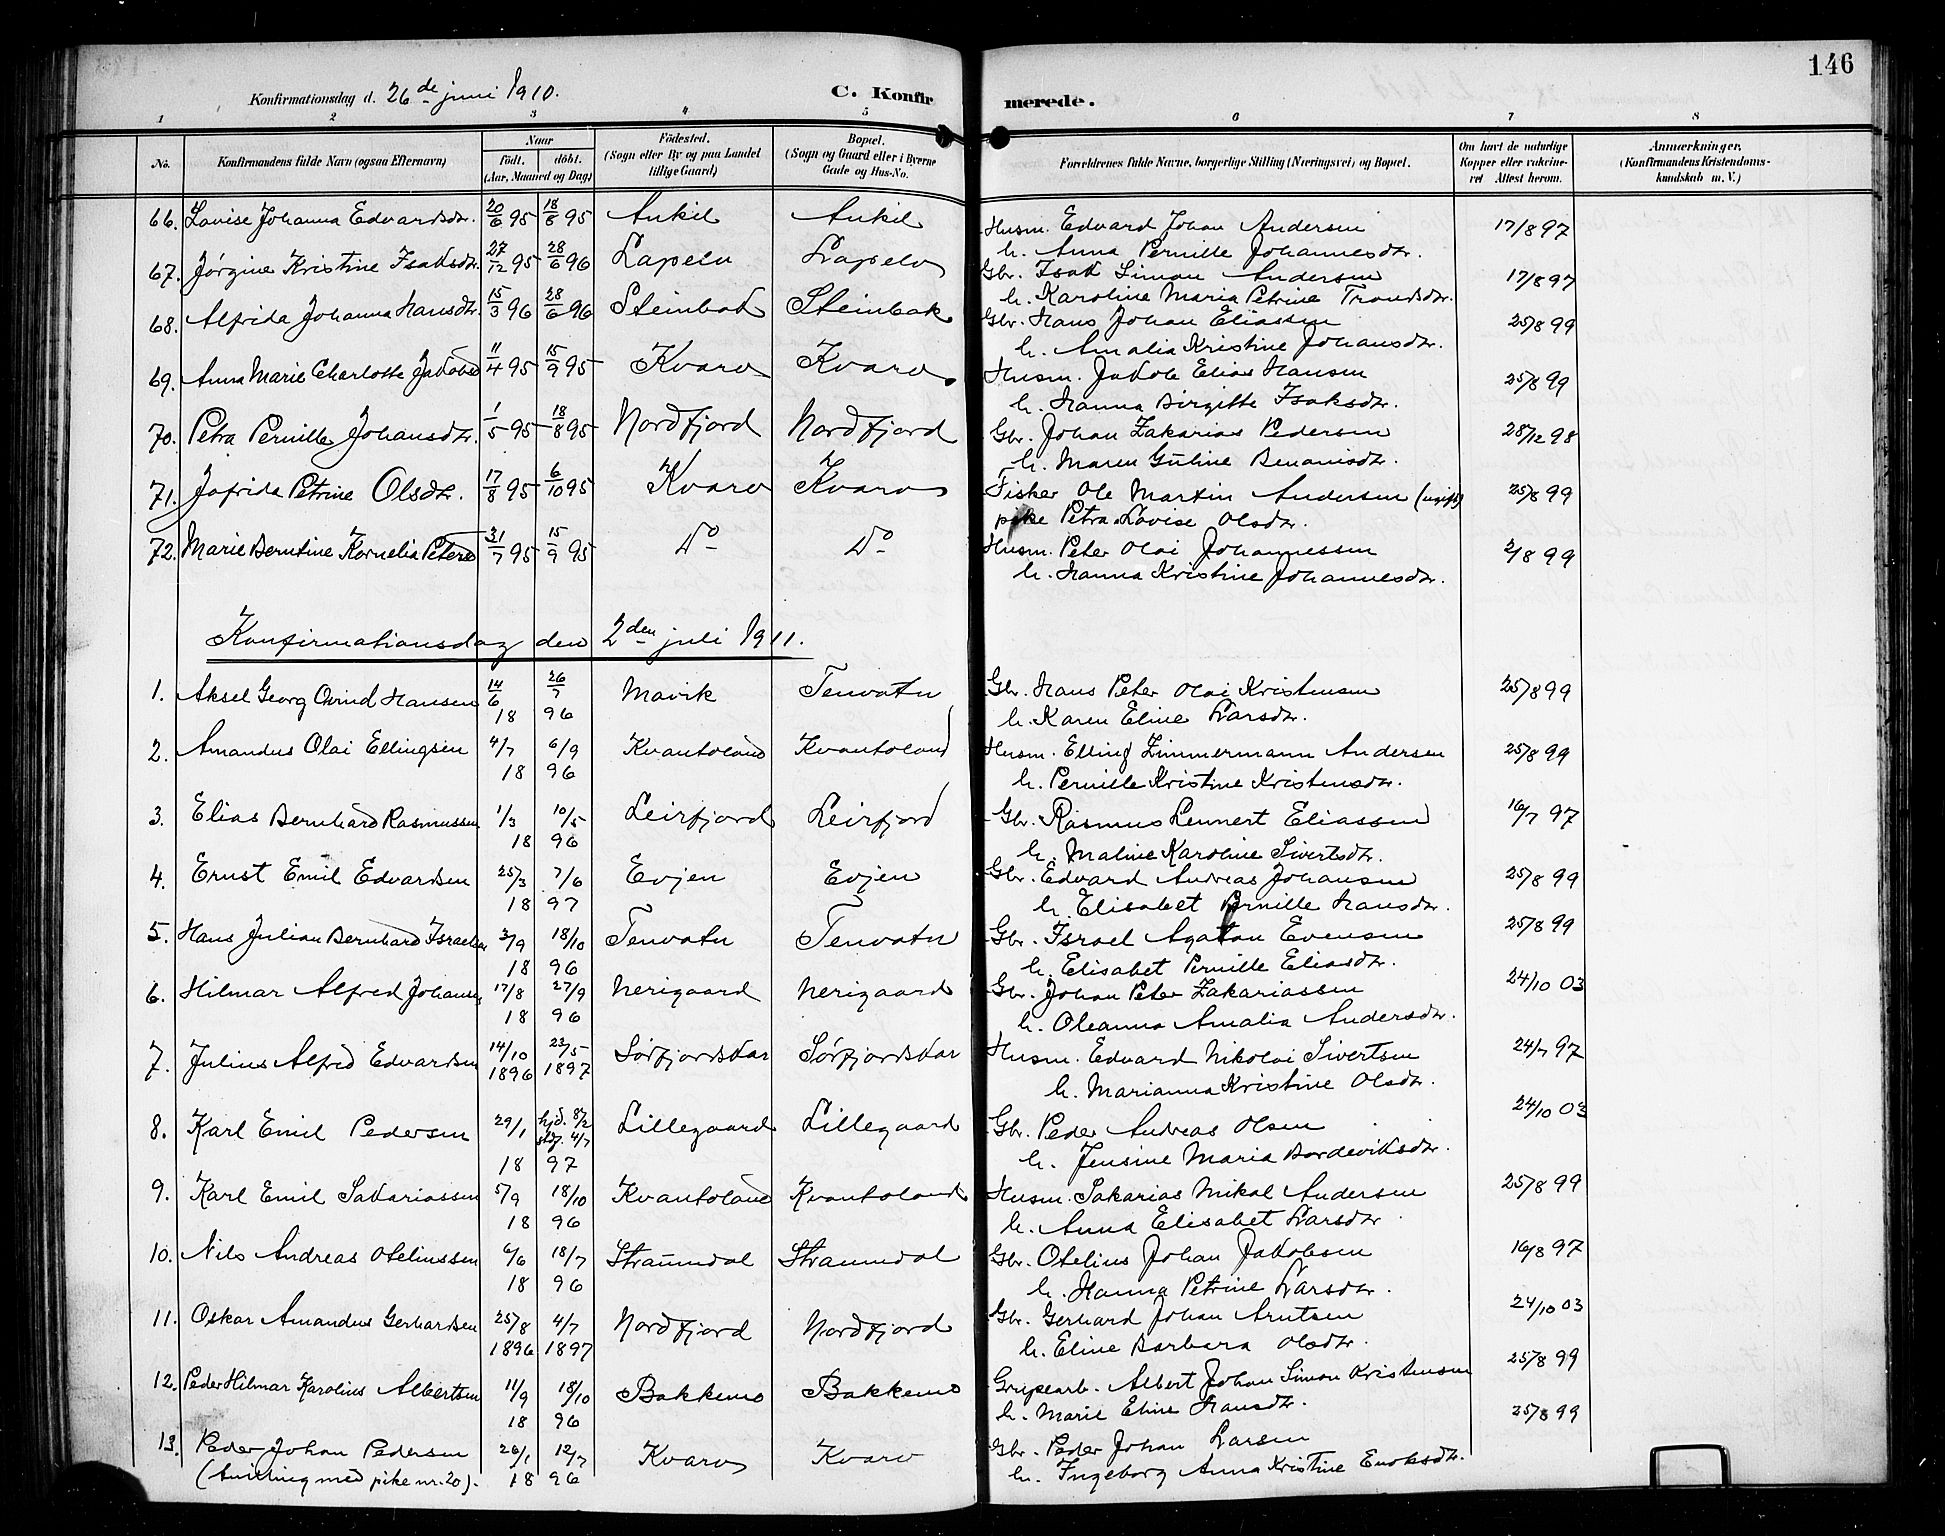 146
Konfirmationsdag d. 26de juni 1910. C. Konfirmerede.
1 2 3 4 5 6 7 8
No. Konfirmandens fulde Navn (ogsaa Efternavn) Naar født. døbt. (Aar, Maaned og Dag) Fødested. (Sogn eller By og paa Landet tillige Gaard) Bopæl. (Sogn og Gaard eller i Byerne Gade og Hus-No. Forældrenes fulde Navne, borgerlige Stilling (Næringsvei) og Bopæl. Om havt de naturlige Kopper eller vakcineret Attest herom. Anmerkninger, (Konfirmandens Kristendomskundskab m. V.)
66. Lovise Johanna Edvardsdtr. 20/6 95 18/8 95 Aukil Aukil Husm. Edvard Johan Andersen 17/8 97
h. Anna Pernille Johannesdtr.
67. Jørgine Kristine Isaksdtr. 27/12 95 28/6 96 Lapelv Lapelv Gbr. Isak Simon Andersen 17/8 97
h. Karoline Maria Petrine Trondsdtr.
68. Alfrida Johanna Hansdtr. 15/3 96 28/6 96 Steinbak Steinbak Gbr. Hans Johan Eliassen 25/8 99
h. Amalia Kristine Johansdtr.
69. Anna Marie Charlotte Jakobsd 11/4 95 15/9 95 Kvarv Kvarv Husm. Jakob Elias Hansen 25/8 99
h. Hanna Birgitte Isaksdtr.
70. Petra Pernille Johansdtr. 1/5 95 18/8 95 Nordfjord Nordfjord Gbr. Johan Zakarias Pedersen 28/12 98
h. Maren Guline Benonisdtr.
71. Jofrida Petrine Olsdtr. 17/8 95 6/10 95 Kvarv Kvarv Fisker Ole Martin Andersen (ugift) 25/8 99
pike Petra Lovise Olsdtr.
72. Marie Berntine Kornelia Petersd 31/7 95 15/9 95 Do Do Husm. Peter Olai Johannessen 2/8 99
h. Hanna Kristine Johannesdtr.
Konfirmationsdag den 2den juli 1911.
1. Aksel Georg Øvind Hansen 14/6 26/7 Mavik Tenvatn Gbr. Hans Peter Olai Kristensen 25/8 99
18 96 h. Karen Eline Larsdtr.
2. Amandus Olai Ellingsen 4/7 6/9 Kvantoland Kvantoland Husm. Elling Zimmermann Andersen 25/8 99
18 96 h. Pernille Kristine Kristensdtr.
3. Elias Bernhard Rasmussen 1/3 10/5 Leirfjord Leirfjord Gbr. Rasmus Lennert Eliassen 16/7 97
18 96 h. Maline Karoline Sivertsdtr.
4. Ernst Emil Edvardsen 25/3 7/6 Evjen Evjen Gbr. Edvard Andreas Johansen 25/8 99
18 97 h. Elisabet Pernille Hansdtr.
5. Hans Julian Bernhard Israelsen 3/9 18/10 Tenvatn Tenvatn Gbr. Israel Agaton Evensen 25/8 99
18 96 h. Elisabet Pernille Eliasdtr.
6. Hilmar Alfred Johansen 17/8 27/9 Nerigaard Nerigaard Gbr. Johan Peter Zakariassen 24/10 03
18 96 h. Oleanna Amalia Andersdtr.
7. Julius Alfred Edvardsen 14/10 23/5 Sørfjordskar Sørfjordskar Husm. Edvard Nikolai Sivertsen 24/7 97
1896 1897 h. Marianna Kristine Olsdtr.
8. Karl Emil Pedersen 29/1 hjd. 8/2 stdf. 4/7 Lillegaard Lillegaard Gbr. Peder Andreas Olsen 24/10 03
18 97 h. Jensine Maria Bordeviksdtr.
9. Karl Emil Sakariassen 5/9 18/10 Kvantoland Kvantoland Husm. Sakarias Mikal Andersen 25/8 99
18 96 h. Anna Elisabet Larsdtr.
10. Nils Andreas Oteliussen 6/6 18/7 Straumdal Straumdal Gbr. Otelius Johan Jakobsen 16/8 97
18 96 h. Hanna Petrine Larsdtr.
11. Oskar Amandus Gerhardsen 25/8 4/7 Nordfjord Nordfjord Gbr. Gerhard Johan Arntsen 24/10 03
1896 1897 h. Eline Barbara Olsdtr.
12. Peder Hilmar Karolius Albertsen 11/9 18/10 Bakkemo Bakkemo Grupearb. Albert Johan Simon Kristensen 25/8 99
18 96 h. Marie Eline Hansdtr.
13. Peder Johan Pedersen 26/1 12/7 Kvarv Kvarv Gbr. Peder Johan Larsen 25/8 99
(tvilling med pike nr. 20). 18 96 h. Ingeborg Anna Kristine Enoksdtr.